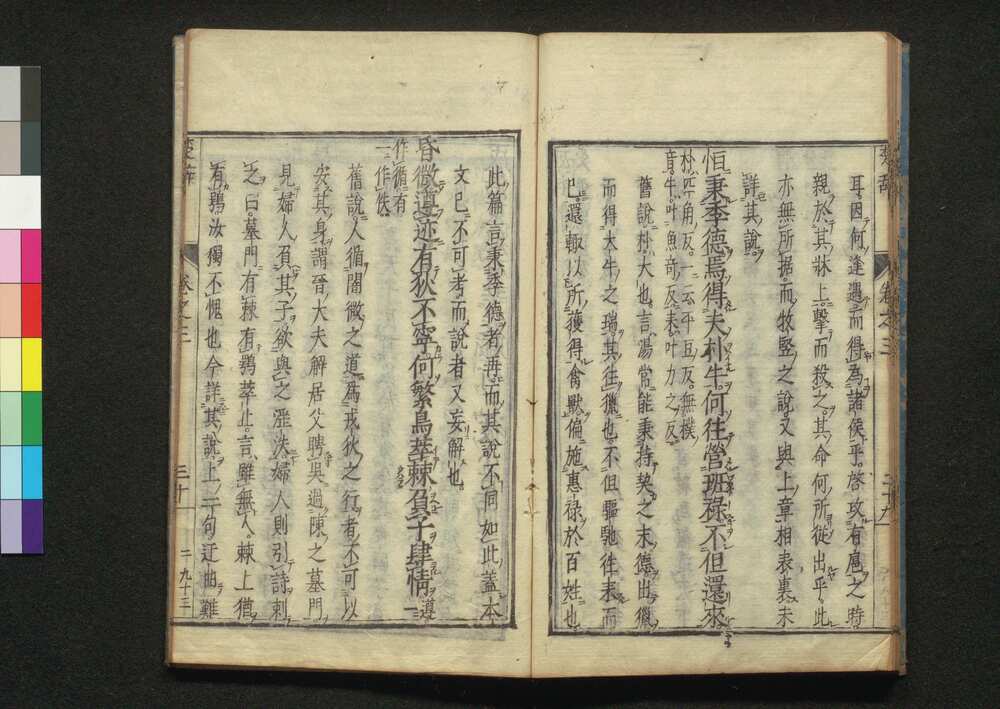 耳因何逢遇而得爲諸侯乎啓攻有扈之時
親於其牀上擊而殺之其命何所從出乎此
亦無所据而牧竪之說又與上章相表裏未
詳其說
恒秉季德焉得夫朴牛何往營班祿不但還來
朴匹角反一云平豆反無樸
音牛叶魚奇反來叶力之反
舊說朴大也言湯常能秉持契之末德出獵
而得大牛之瑞其往獵也不但驅馳往來而
已還輙以所獲得禽獸徧施惠祿於百姓也
此篇言秉季德者再而其說不同如此蓋本
文已不可考而說者又妄解也
昏微遵迹有狄不寧何繁鳥萃棘負子肆情遵一
作循有
一作佚
舊說人循闇微之道爲戎狄之行者不可以
安其身謂晉大夫解居父聘吳過陳之墓門
見婦人負其子欲與之淫泆婦人則引詩刺
之曰墓門有棘有鴞萃止言雖無人棘上猶
有鴞汝獨不愧也今詳其說上二句迂曲難
楚辭
卷之三
三十
二九十三
卷之三
二十九